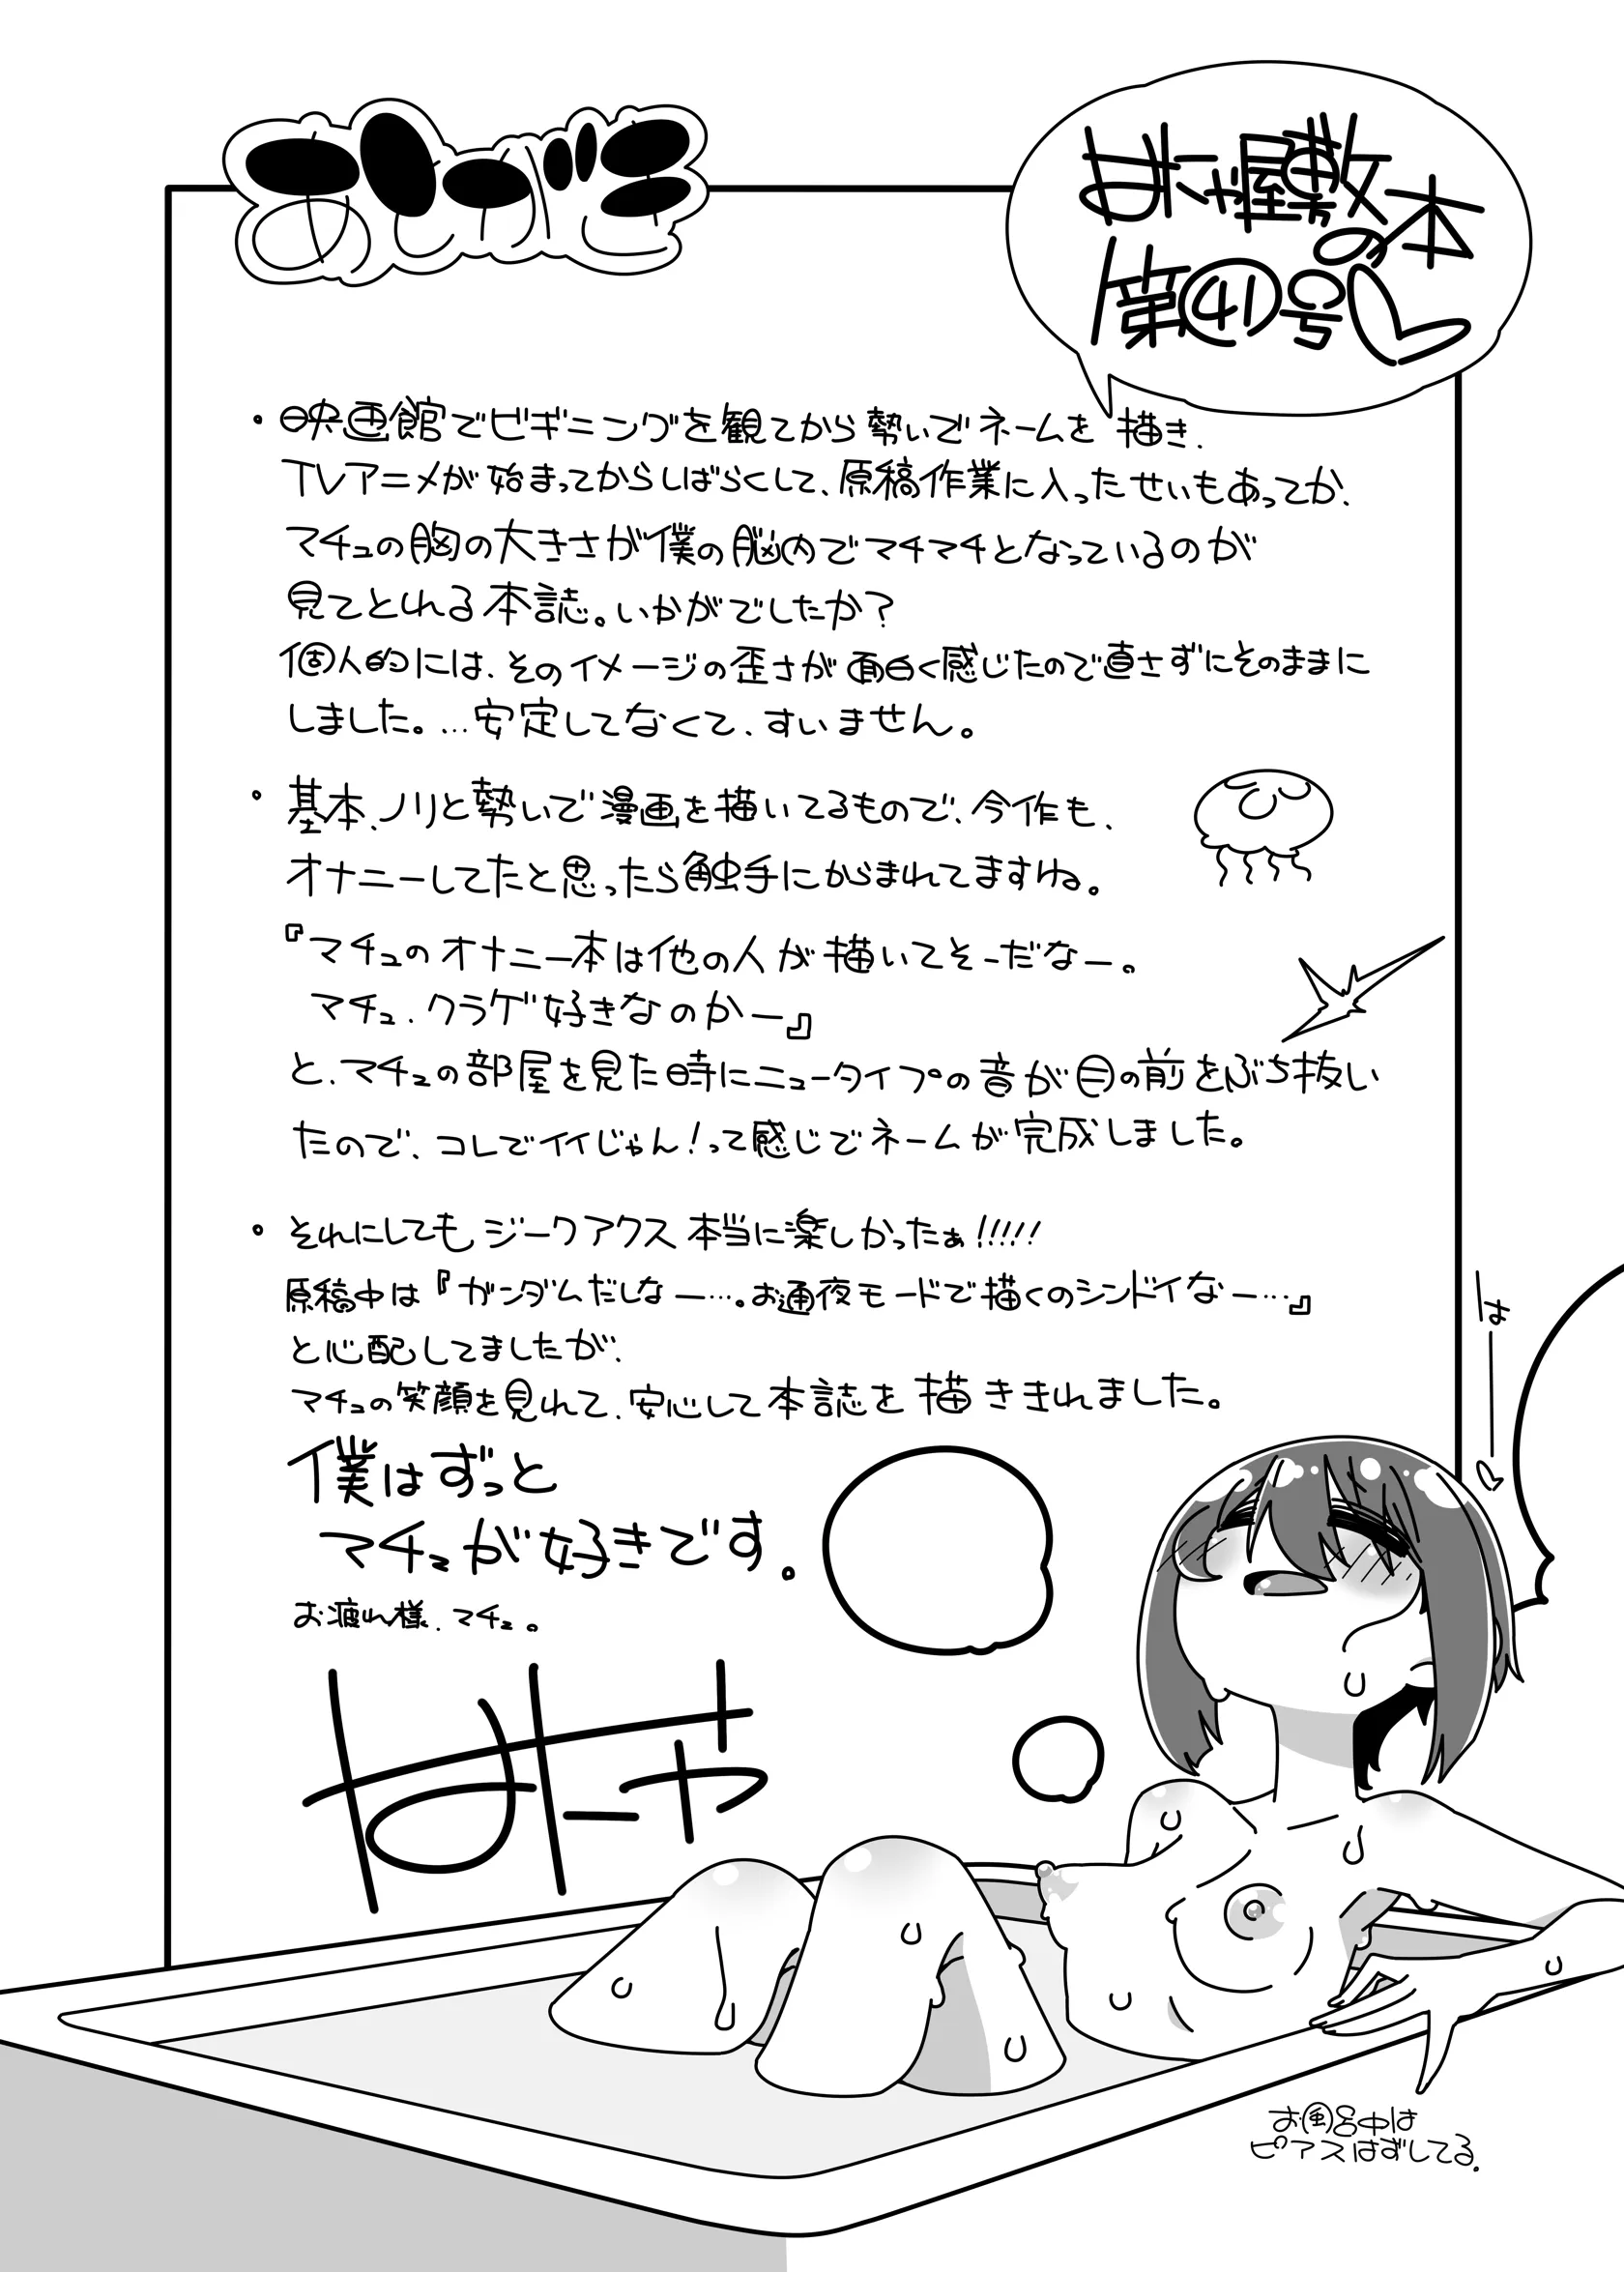 あとがき
はにゃ屋敷の本
第㊶号♡
・映画館でビギニングを観てから勢いでネームを描き、
TVアニメが始まってからしばらくして、原稿作業に入ったせいもあってか、
マチュの胸の大きさが僕の脳内でマチマチとなっているのが
見てとれる本誌。いかがでしたか?
個人的には、そのイメージの歪さが面白く感じたので直さずにそのままに
しました。…安定してなくて、すいません。
・基本、ノリと勢いで漫画を描いてるもので、今作も、
オナニーしてたと思ったら触手にからまれてますね。
『マチュのオナニー本は他の人が描いてそーだなー。
マチュ、クラゲ好きなのかー』
と、マチュの部屋を見た時にニュータイプの音が目の前をぶち抜い
たので、コレでイイじゃん!って感じでネームが完成しました。
・それにしてもジークアクス本当に楽しかったぁ!!!!!
原稿中は『ガンダムだしなー…。お通夜モードで描くのシンドイなー…』
と心配してましたが、
マチュの笑顔を見れて、安心して本誌を描ききれました。
僕はずっと
マチュが好きです。
お疲れ様、マチュ。
はにゃ
はー♡
お風呂中は
ピアスはずしてる。